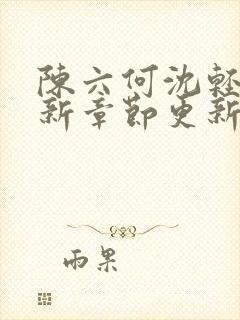 陳六何沈輕
新章節更新
雨果